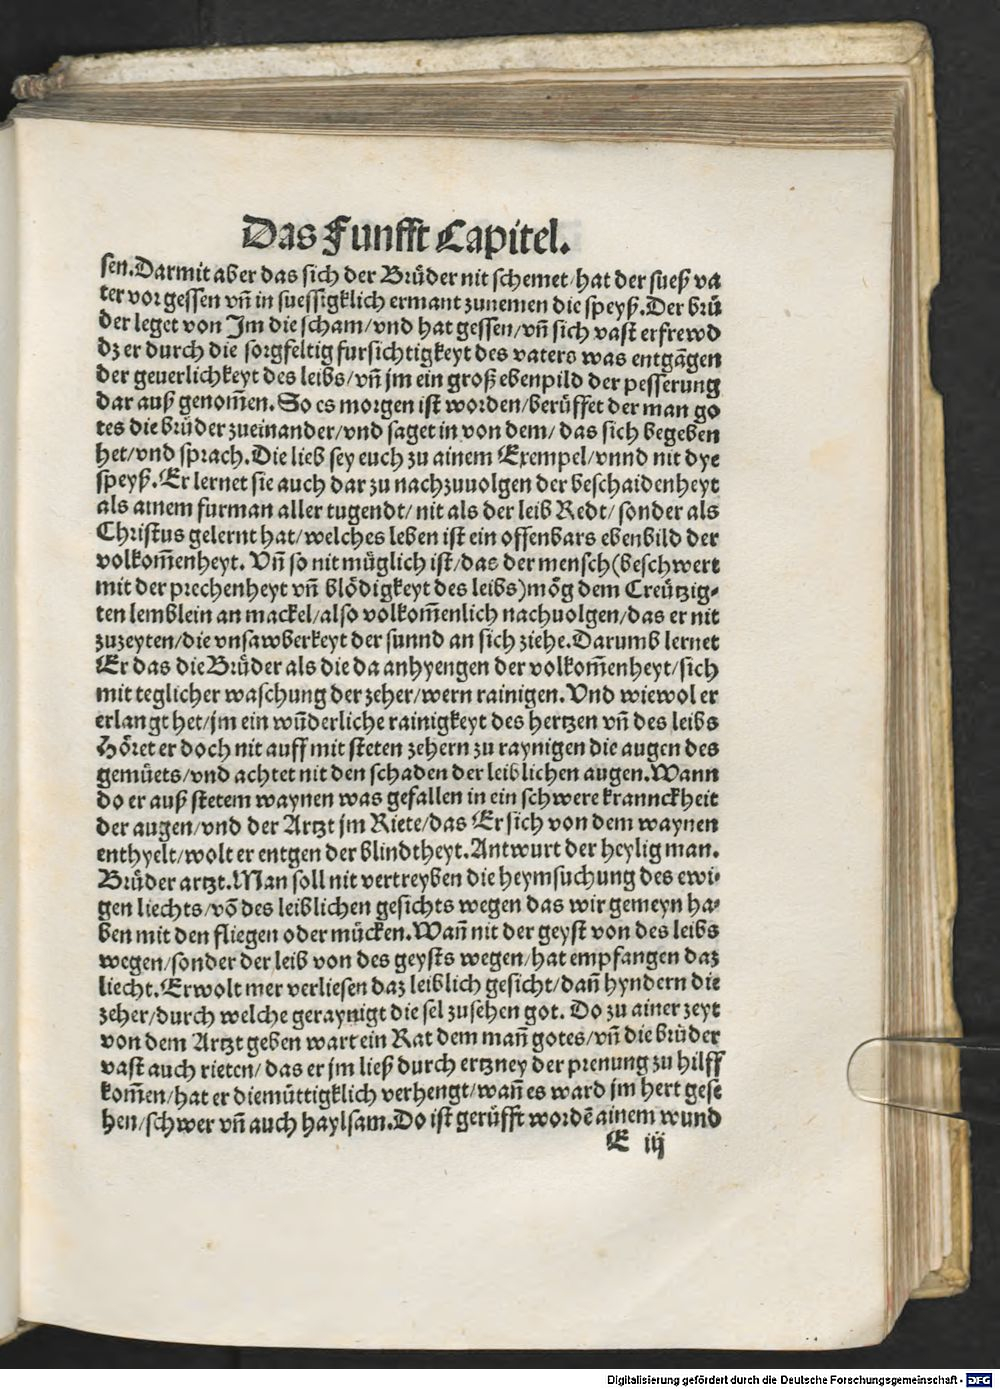 Das Funfft Capitel.
sen. Darmit aber das sich der Brüder nit schemet/ hat der sueß va
ter vor gessen vn̄ in suessigklich ermant zunemen die speyß. Der brü
der leget von Im die scham/ vnd hat gessen/ vn̄ sich vast erfrewd
dz er durch die sorgfeltig fursichtigkeyt des vaters was entgāgen
der geuerlichkeyt des leibs/ vn̄ jm ein groß ebenpild der pesserung
dar auß genom̄en. So es morgen ist worden/ berüffet der man go
tes die brüder zueinander/ vnd saget in von dem/ das sich begeben
het/ vnd sprach. Die lieb sey euch zu ainem Exempel/ vnnd nit dye
speyß. Er lernet sie auch dar zu nachzuuolgen der beschaidenheyt
als ainem furman aller tugendt/ nit als der leib Redt/ sonder als
Christus gelernt hat/ welches leben ist ein offenbars ebenbild der
volkom̄enheyt. Vn̄ so nit müglich ist/ das der mensch (beschwert
mit der prechenheyt vn̄ blödigkeyt des leibs) mög dem Creützig⸗
ten lemblein an mackel/ also volkom̄enlich nachuolgen/ das er nit
zuzeyten/ die vnsawberkeyt der sunnd an sich ziehe. Darumb lernet
Er das die Brüder als die da anhyengen der volkom̄enheyt/ sich
mit teglicher waschung der zeher/ wern rainigen. Vnd wiewol er
erlangt het/ jm ein wūderliche rainigkeyt des hertzen vn̄ des leibs
Höret er doch nit auff mit steten zehern zu raynigen die augen des
gemüets/ vnd achtet nit den schaden der leiblichen augen. Wann
do er auß stetem waynen was gefallen in ein schwere kranckheit
der augen/ vnd der Artzt jm Riete/ das Er sich von dem waynen
enthyelt/ wolt er entgen der blindtheyt. Antwurt der heylig man.
Brüder artzt. Man soll nit vertreyben die heymsuchung des ewi⸗
gen liechts/ vō des leiblichen gesichts wegen das wir gemeyn ha⸗
ben mit den fliegen oder mücken. Wan̄ nit der geyst von des leibs
wegen/ sonder der leib von des geysts wegen/ hat empfangen daz
liecht. Er wolt mer verliesen daz leiblich gesicht/ dan̄ hyndern die
zeher/ durch welche geraynigt die sel zusehen got. Do zu ainer zeyt
von dem Artzt geben wart ein Rat dem man̄ gotes/ vn̄ die brüder
vast auch rieten/ das er jm ließ durch ertzney der prenung zu hilff
kom̄en/ hat er diemüttigklich verhengt/ wan̄ es ward jm hert gese
hen/ schwer vn̄ auch haylsam. Do ist gerüfft wordē ainem wund
E iij
Digitalisierung gefördert durch die Deutsche Forschungsgemeinschaft - DFG